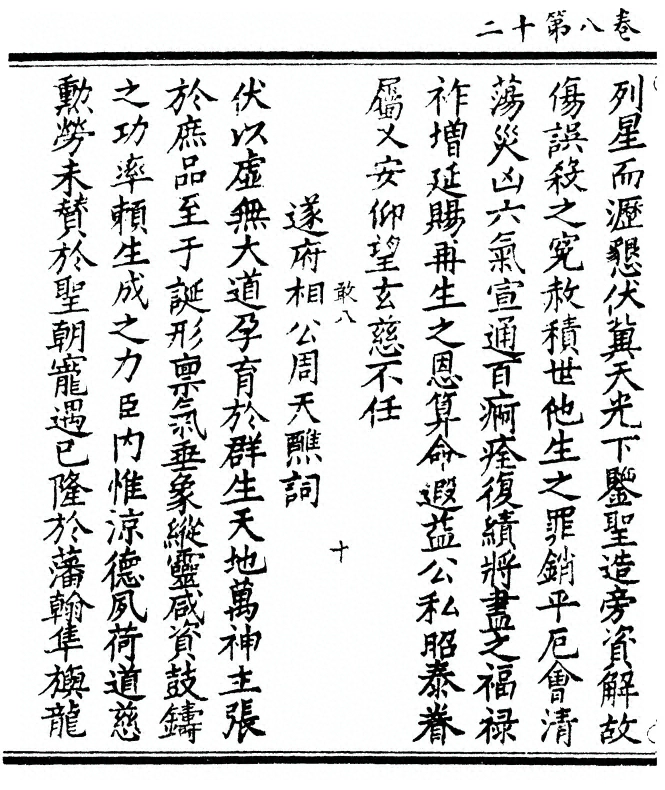 卷八第十二
列星而瀝懇伏冀天光下鑒聖造旁資解故
傷誤殺之冤赦積世他生之罪銷平厄會清
蕩災凶六氣宣通百痾痊復續將盡之福祿
祚增延賜再生之恩算命遐益公私昭泰眷
屬乂安仰望玄慈不任
敢八
十
遂府相公周天醮詞
伏以虛無大道孕育於群生天地萬神主張
於庶品至于誕形稟气垂象縱靈咸資鼓鑄
之功率賴生成之力臣內惟涼德夙荷道慈
勲勞未賛於聖朝寵遇已隆於藩翰隼旟龍